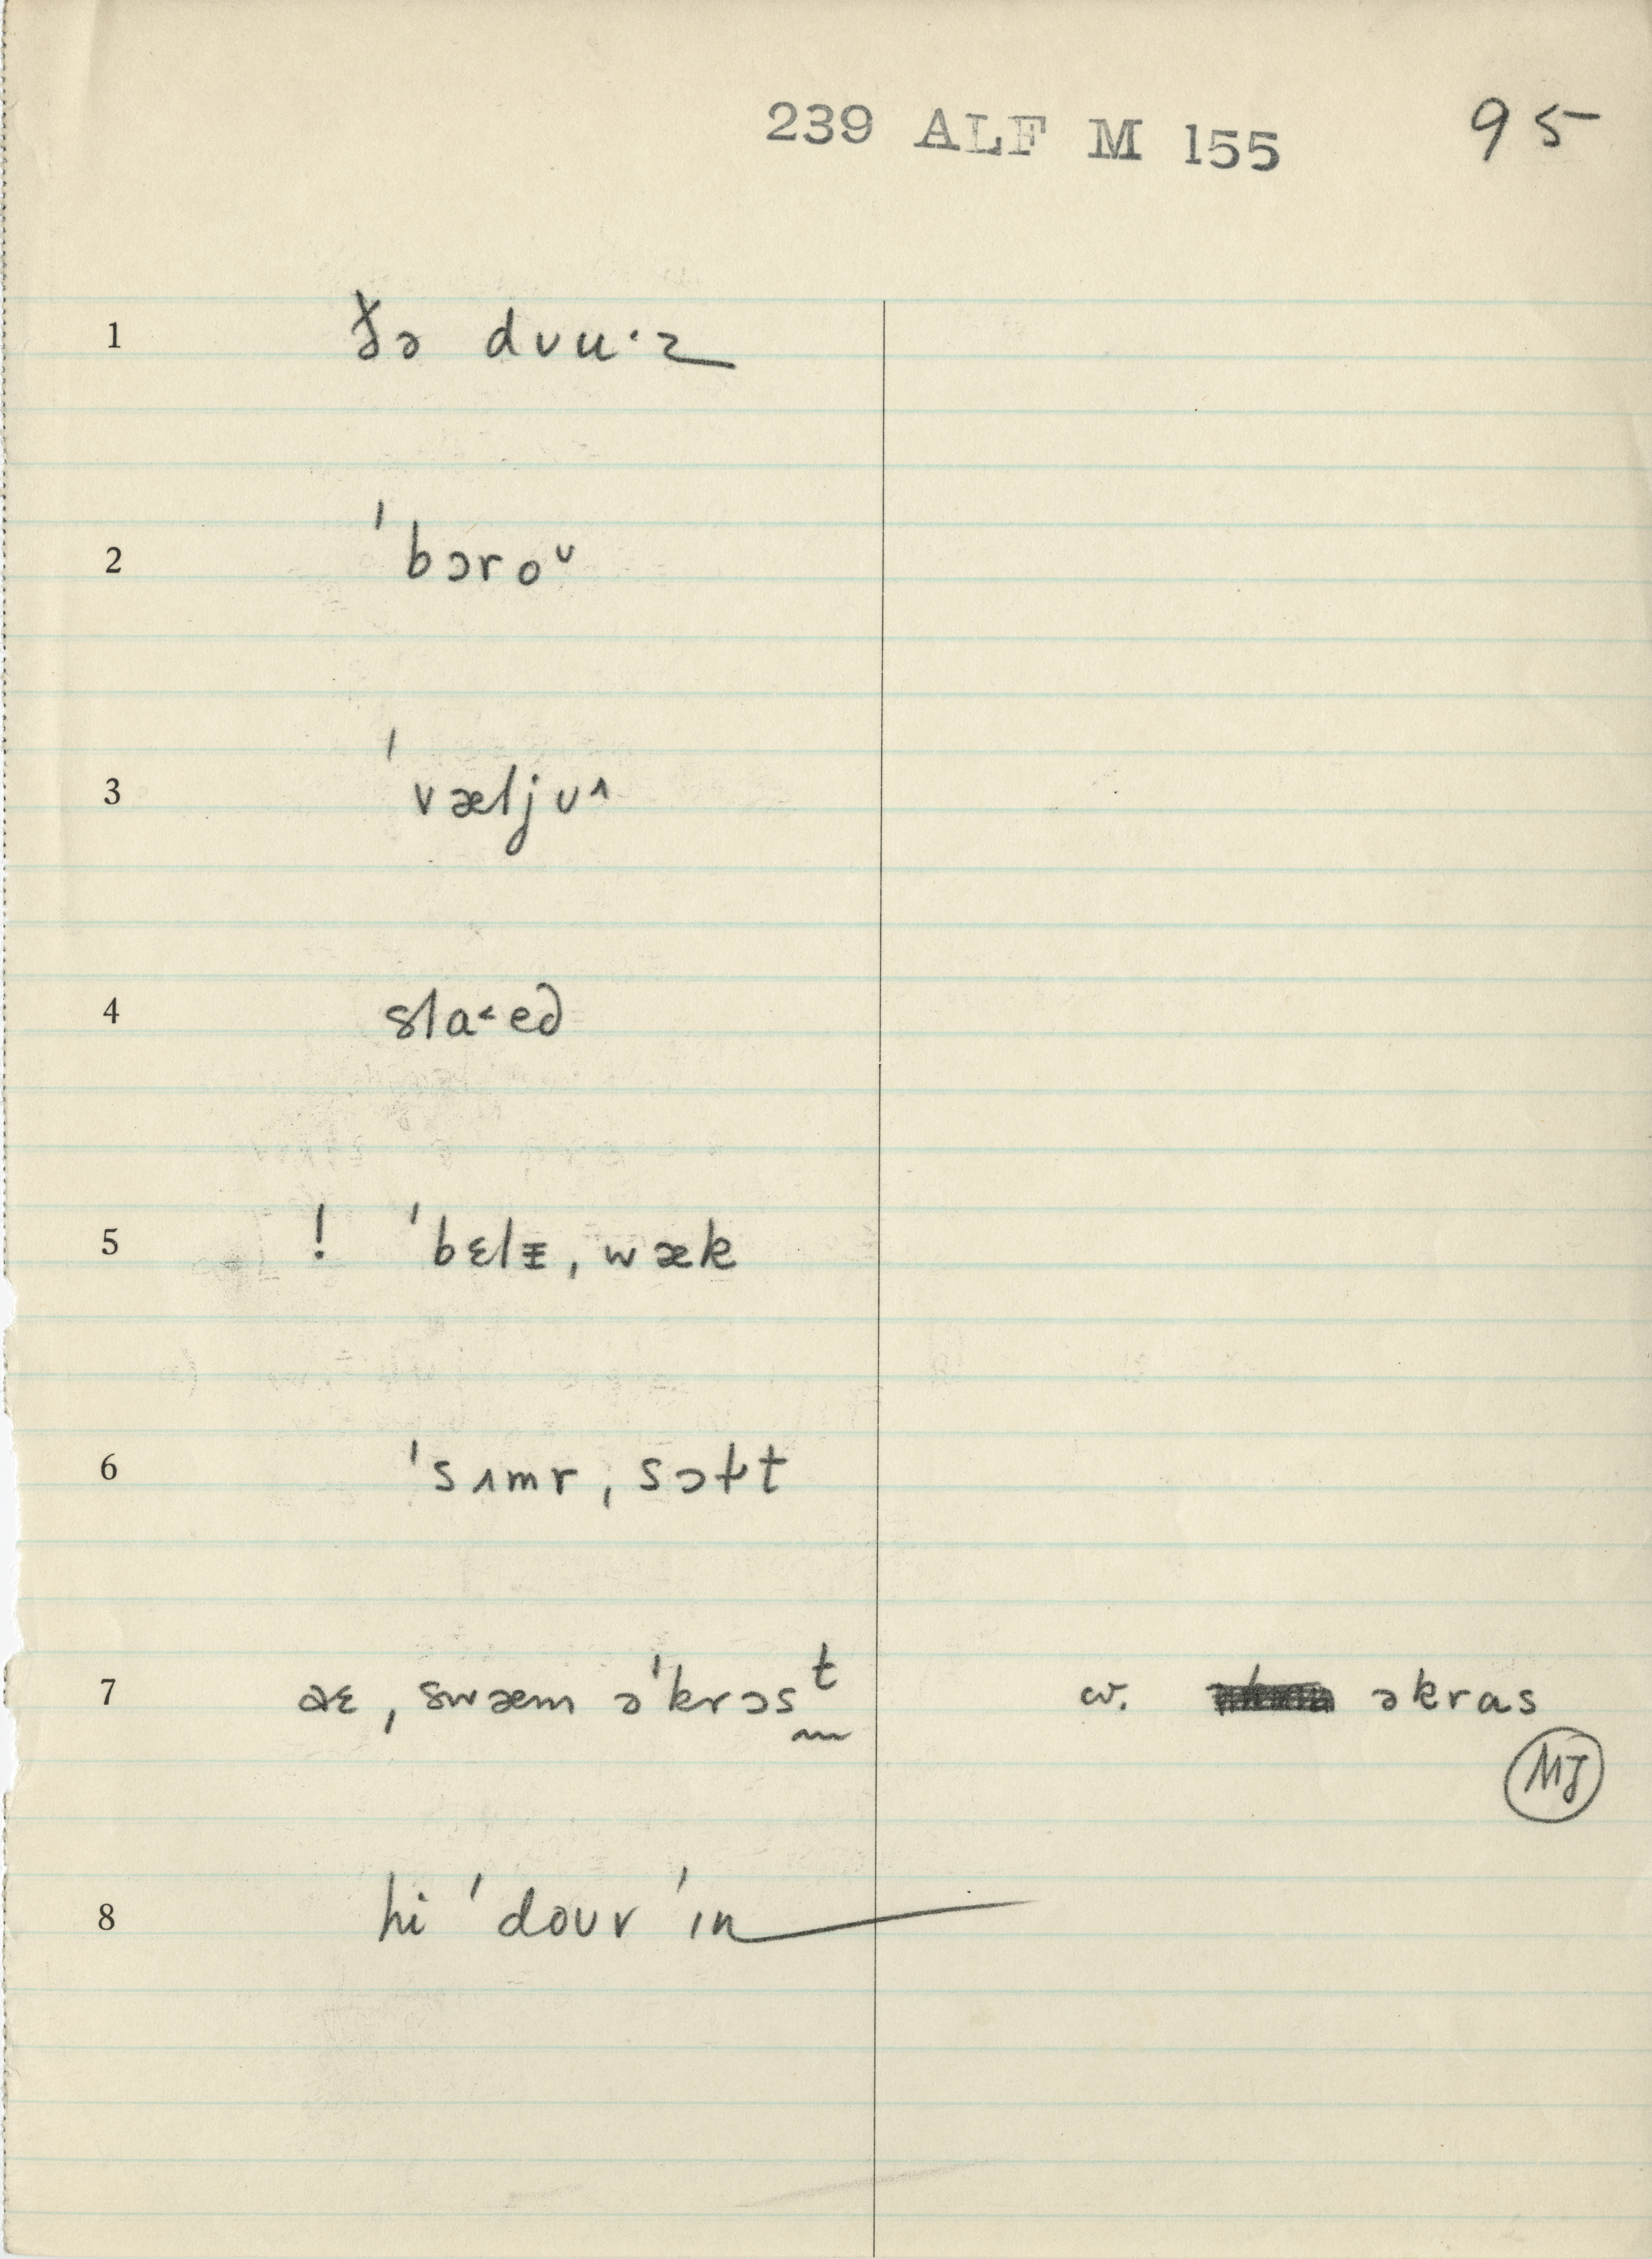 239 ALF M 155 95
1 ðə dʊu·z
2 ˈbɔroᶷ
3 ˈvæljʊ˄
4 sla˂ed
5 ! ˈbɛlɪ̵, wæk
6 ˈsʌmr, sɔɫt
7 aɛ, swæm əˈkrɔsᵗ cv. əkras
MJ
8 hi ˈdoʊv ˈɪn